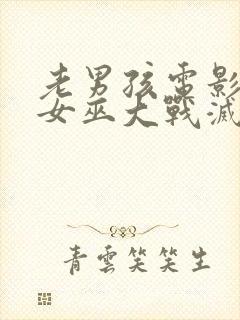 老男孩電影
女巫大戰滅
青雲笑笑生